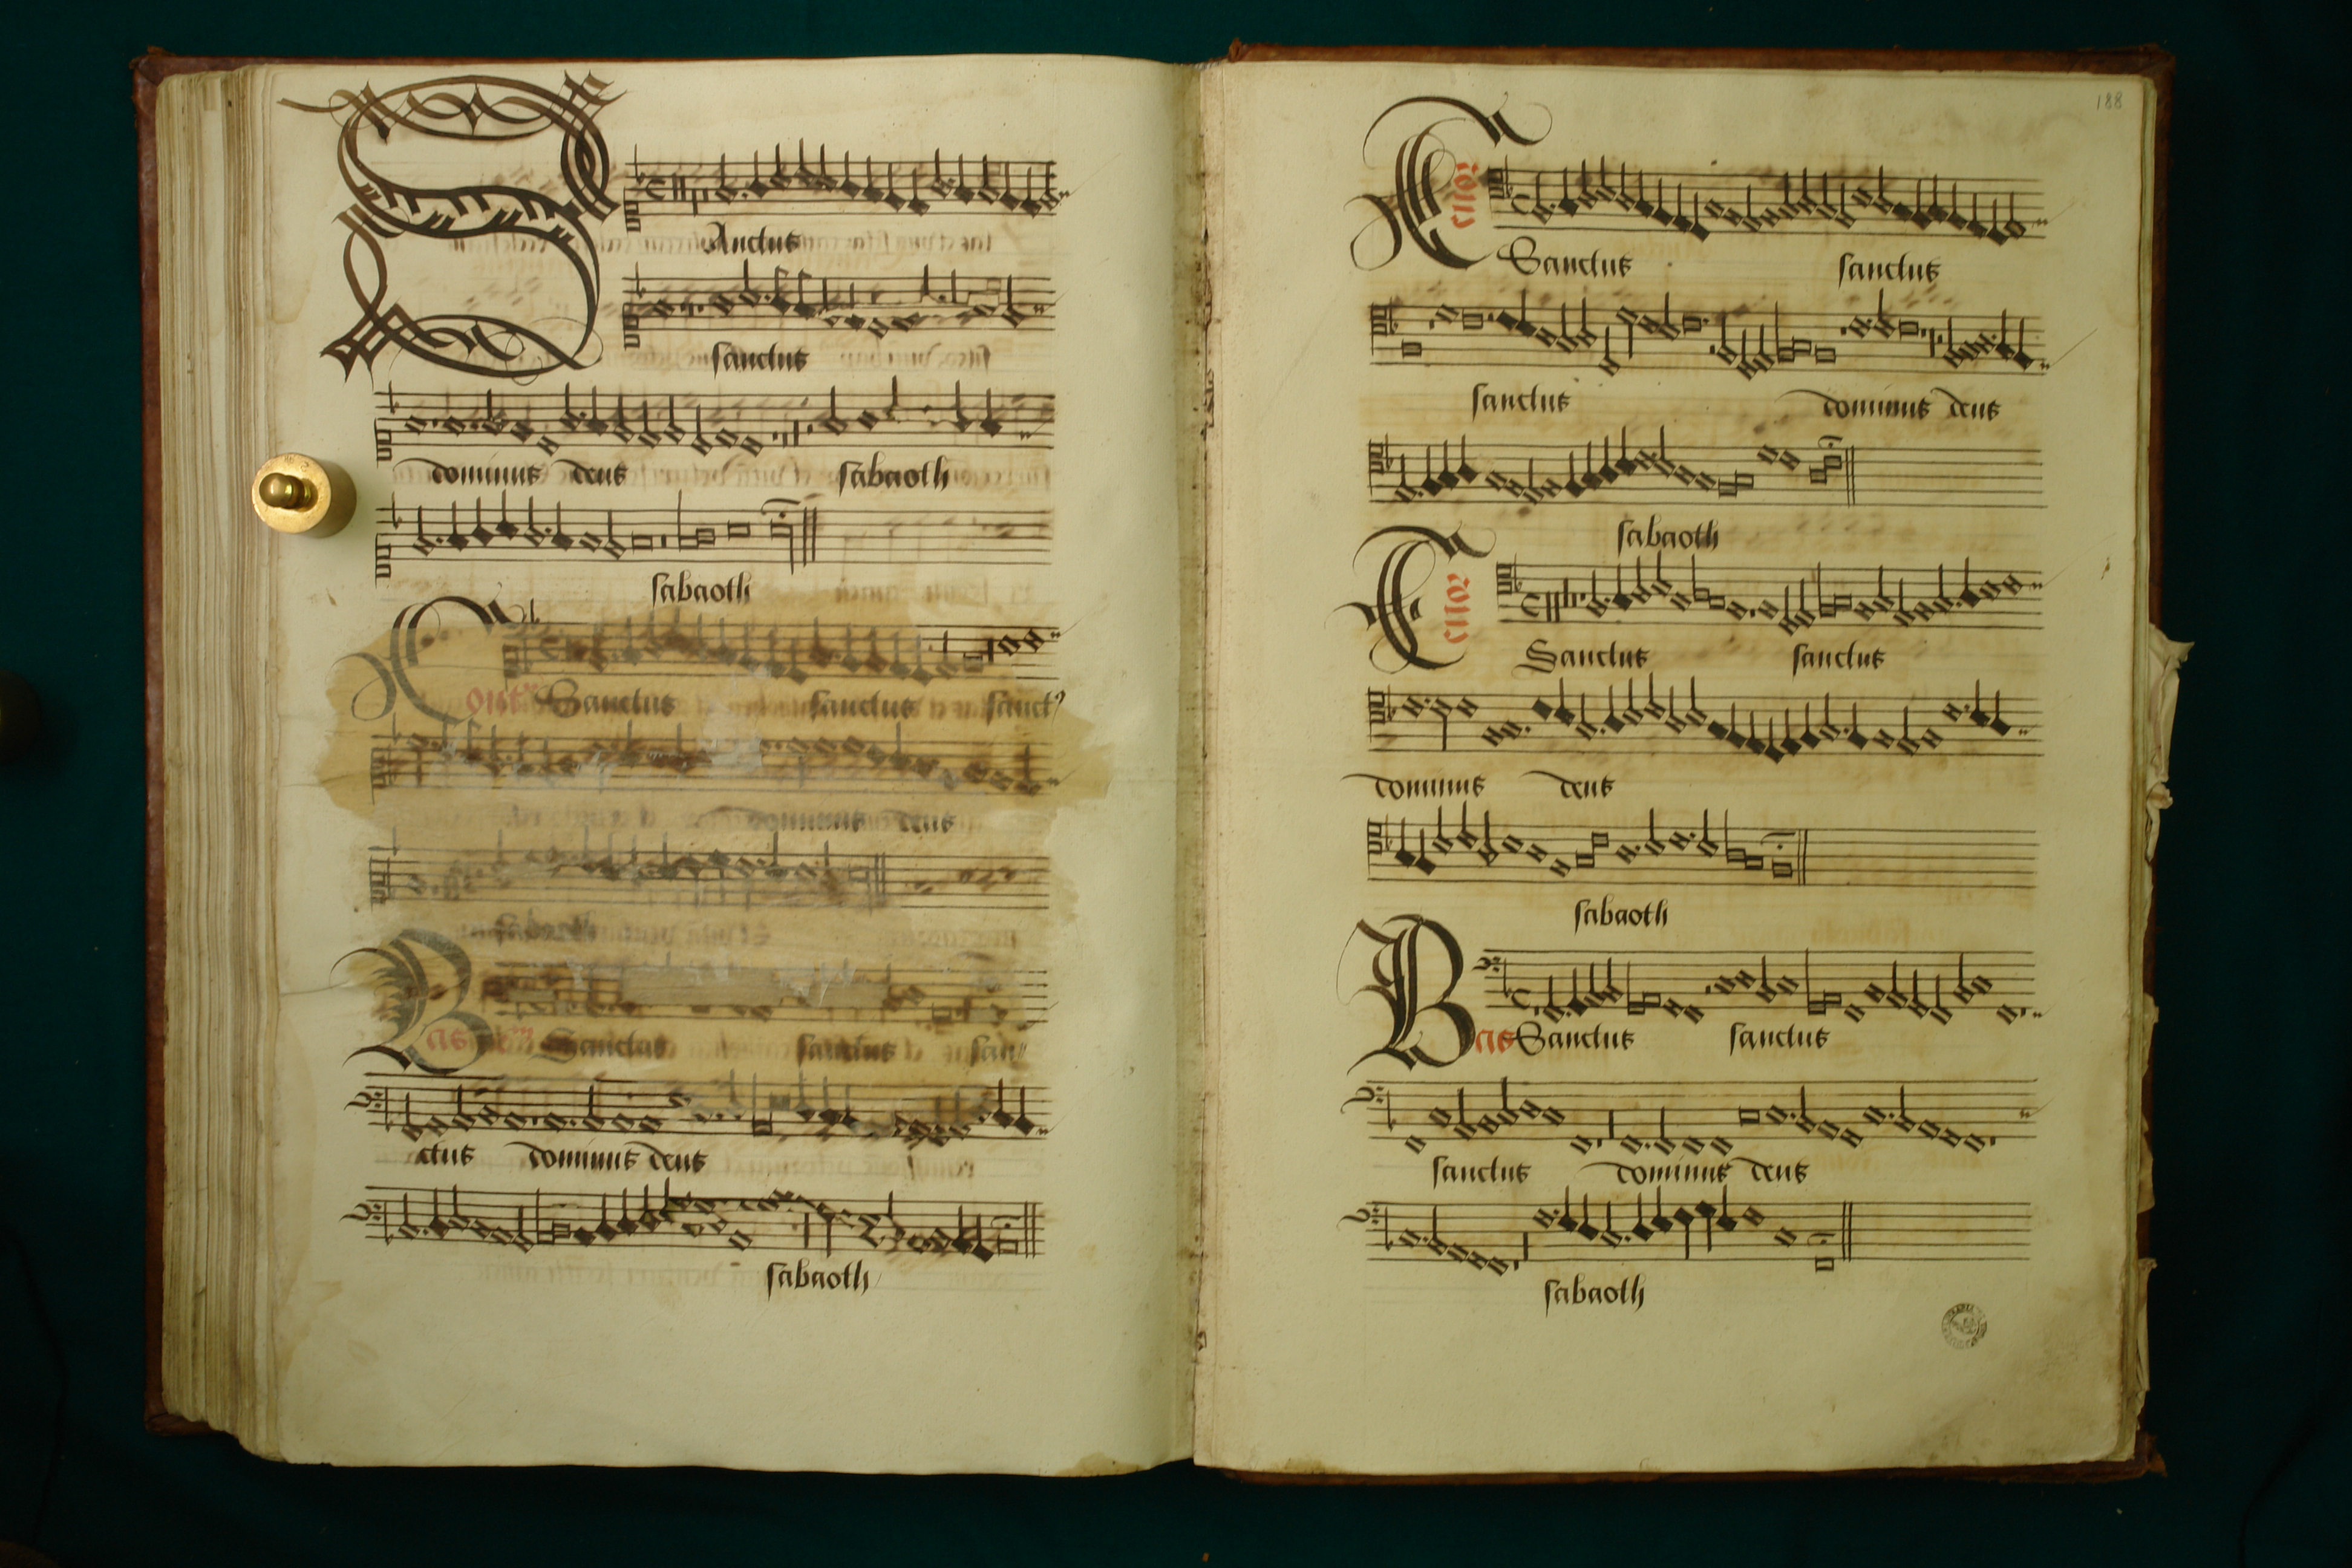 SAnctus
sanctus
dominus deus sabaoth
sabaoth
Sanctus sanctus sanct9
dominus deus
sabaoth
Bas Sanctus sanctus san
ctus dominus deus
sabaoth
188
Tenor
Sanctus sanctus
sanctus dominus deus
sabaoth
Tenor
Sanctus sanctus
dominus deus
sabaoth
Bas Sanctus sanctus
sanctus dominus deus
sabaoth